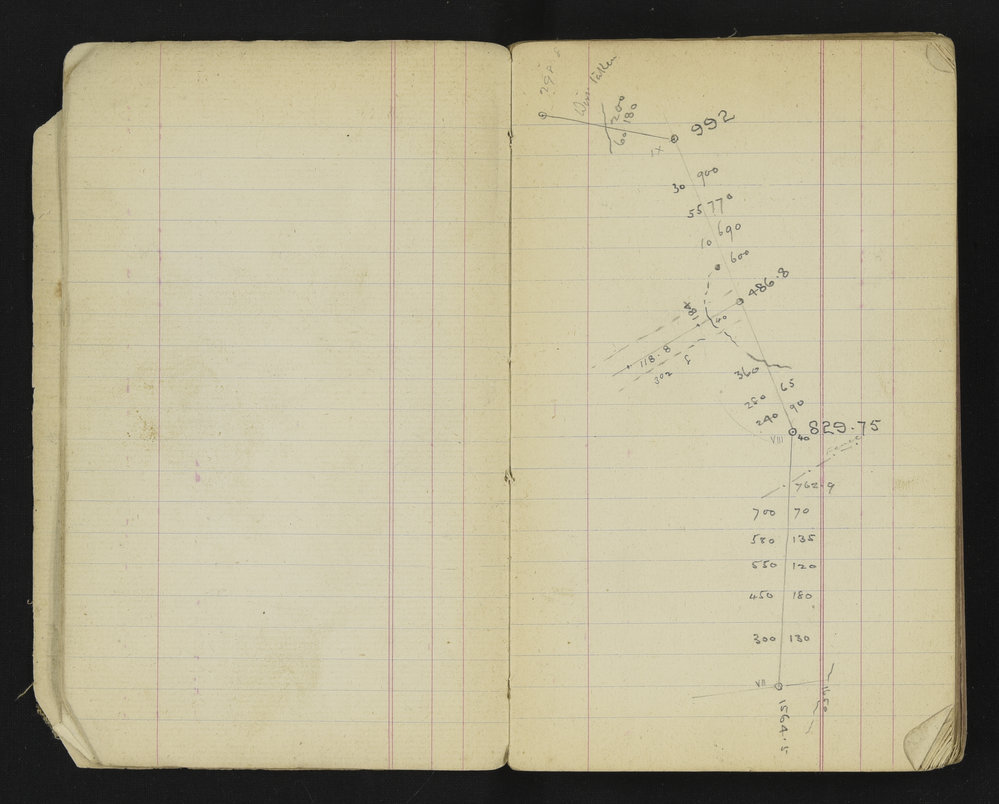 298
200
180
60
992
IX
30 900
55 770
10 690
600
486.8
184
40
118.8
302
360
65
280
90
240
VIII
40
829.75
762.9
700 70
580 135
550 120
450 180
300 130
VII
1650
1564.5